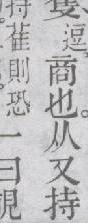 隻。逗。商也。从又持
持萑則恐
一曰視